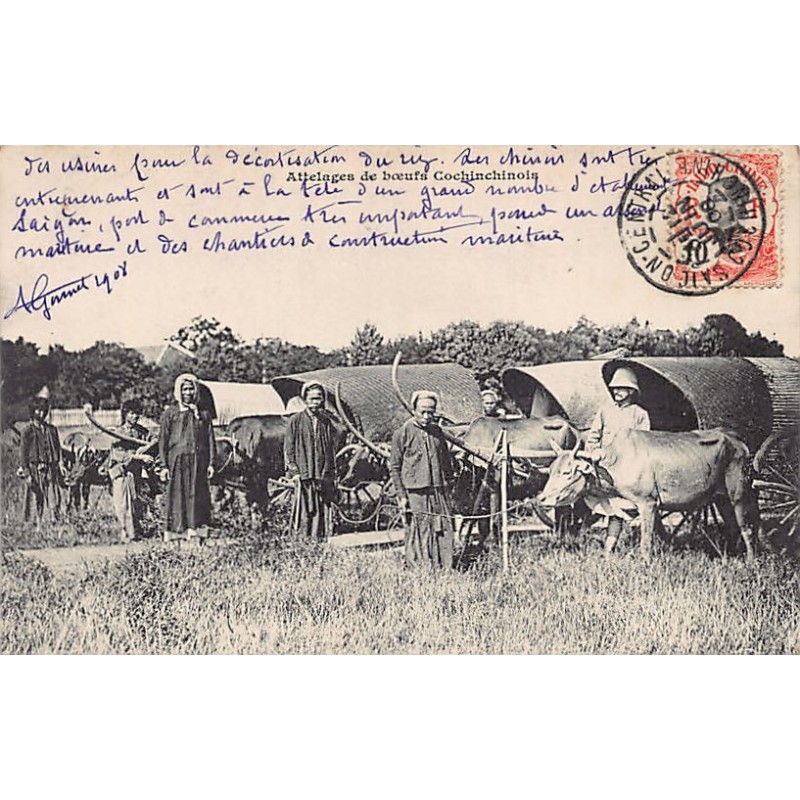 des usines pour la décortisation du riz. Les chinois sont très
Attelages de bœufs Cochinchinois
entreprenants et sont à la tête d'un grand nombre d'
Saigon, port de commerce très important, possède un
maritime et des chantiers de construction maritime.
1908
SAIGON-CENTRAL
COCHINCHINE
INDO-CHINE
10